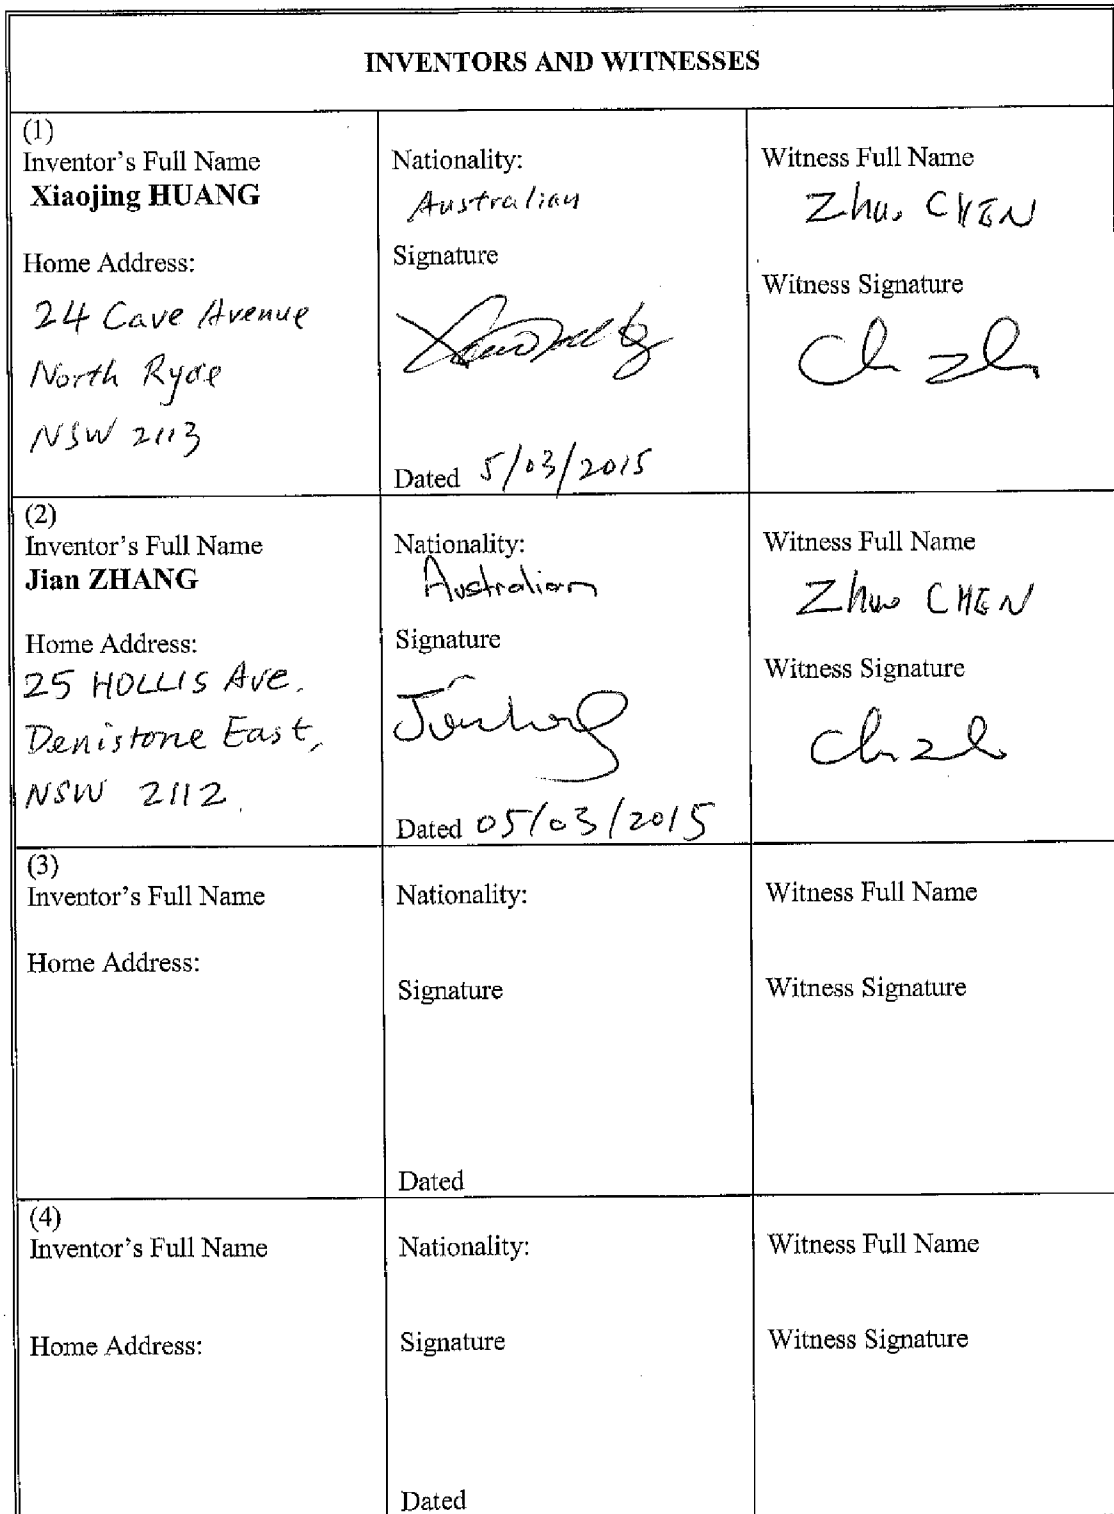 INVENTORS AND WITNESSES
(1)
Inventor's Full Name
Xiaojing HUANG
Home Address:
24 Cave Avenue
North Ryde
NSW 2113
Nationality:
Australian
Signature
Dated 5/03/2015
Witness Full Name
Zhuo CHEN
Witness Signature
(2)
Inventor's Full Name
Jian ZHANG
Home Address:
25 HOLLIS Ave.
Denistone East,
NSW 2112.
Nationality:
Australian
Signature
Dated 05/03/2015
Witness Full Name
Zhuo CHEN
Witness Signature
(3)
Inventor's Full Name
Home Address:
Nationality:
Signature
Dated
Witness Full Name
Witness Signature
(4)
Inventor's Full Name
Home Address:
Nationality:
Signature
Dated
Witness Full Name
Witness Signature